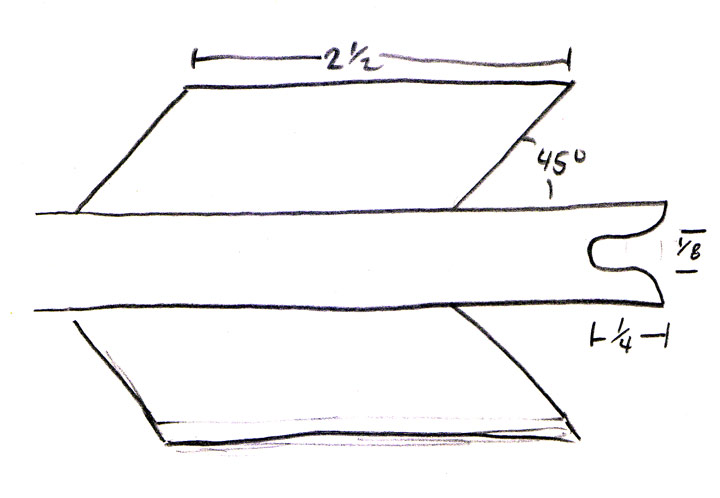 2 1/2
45°
1/8
1/4